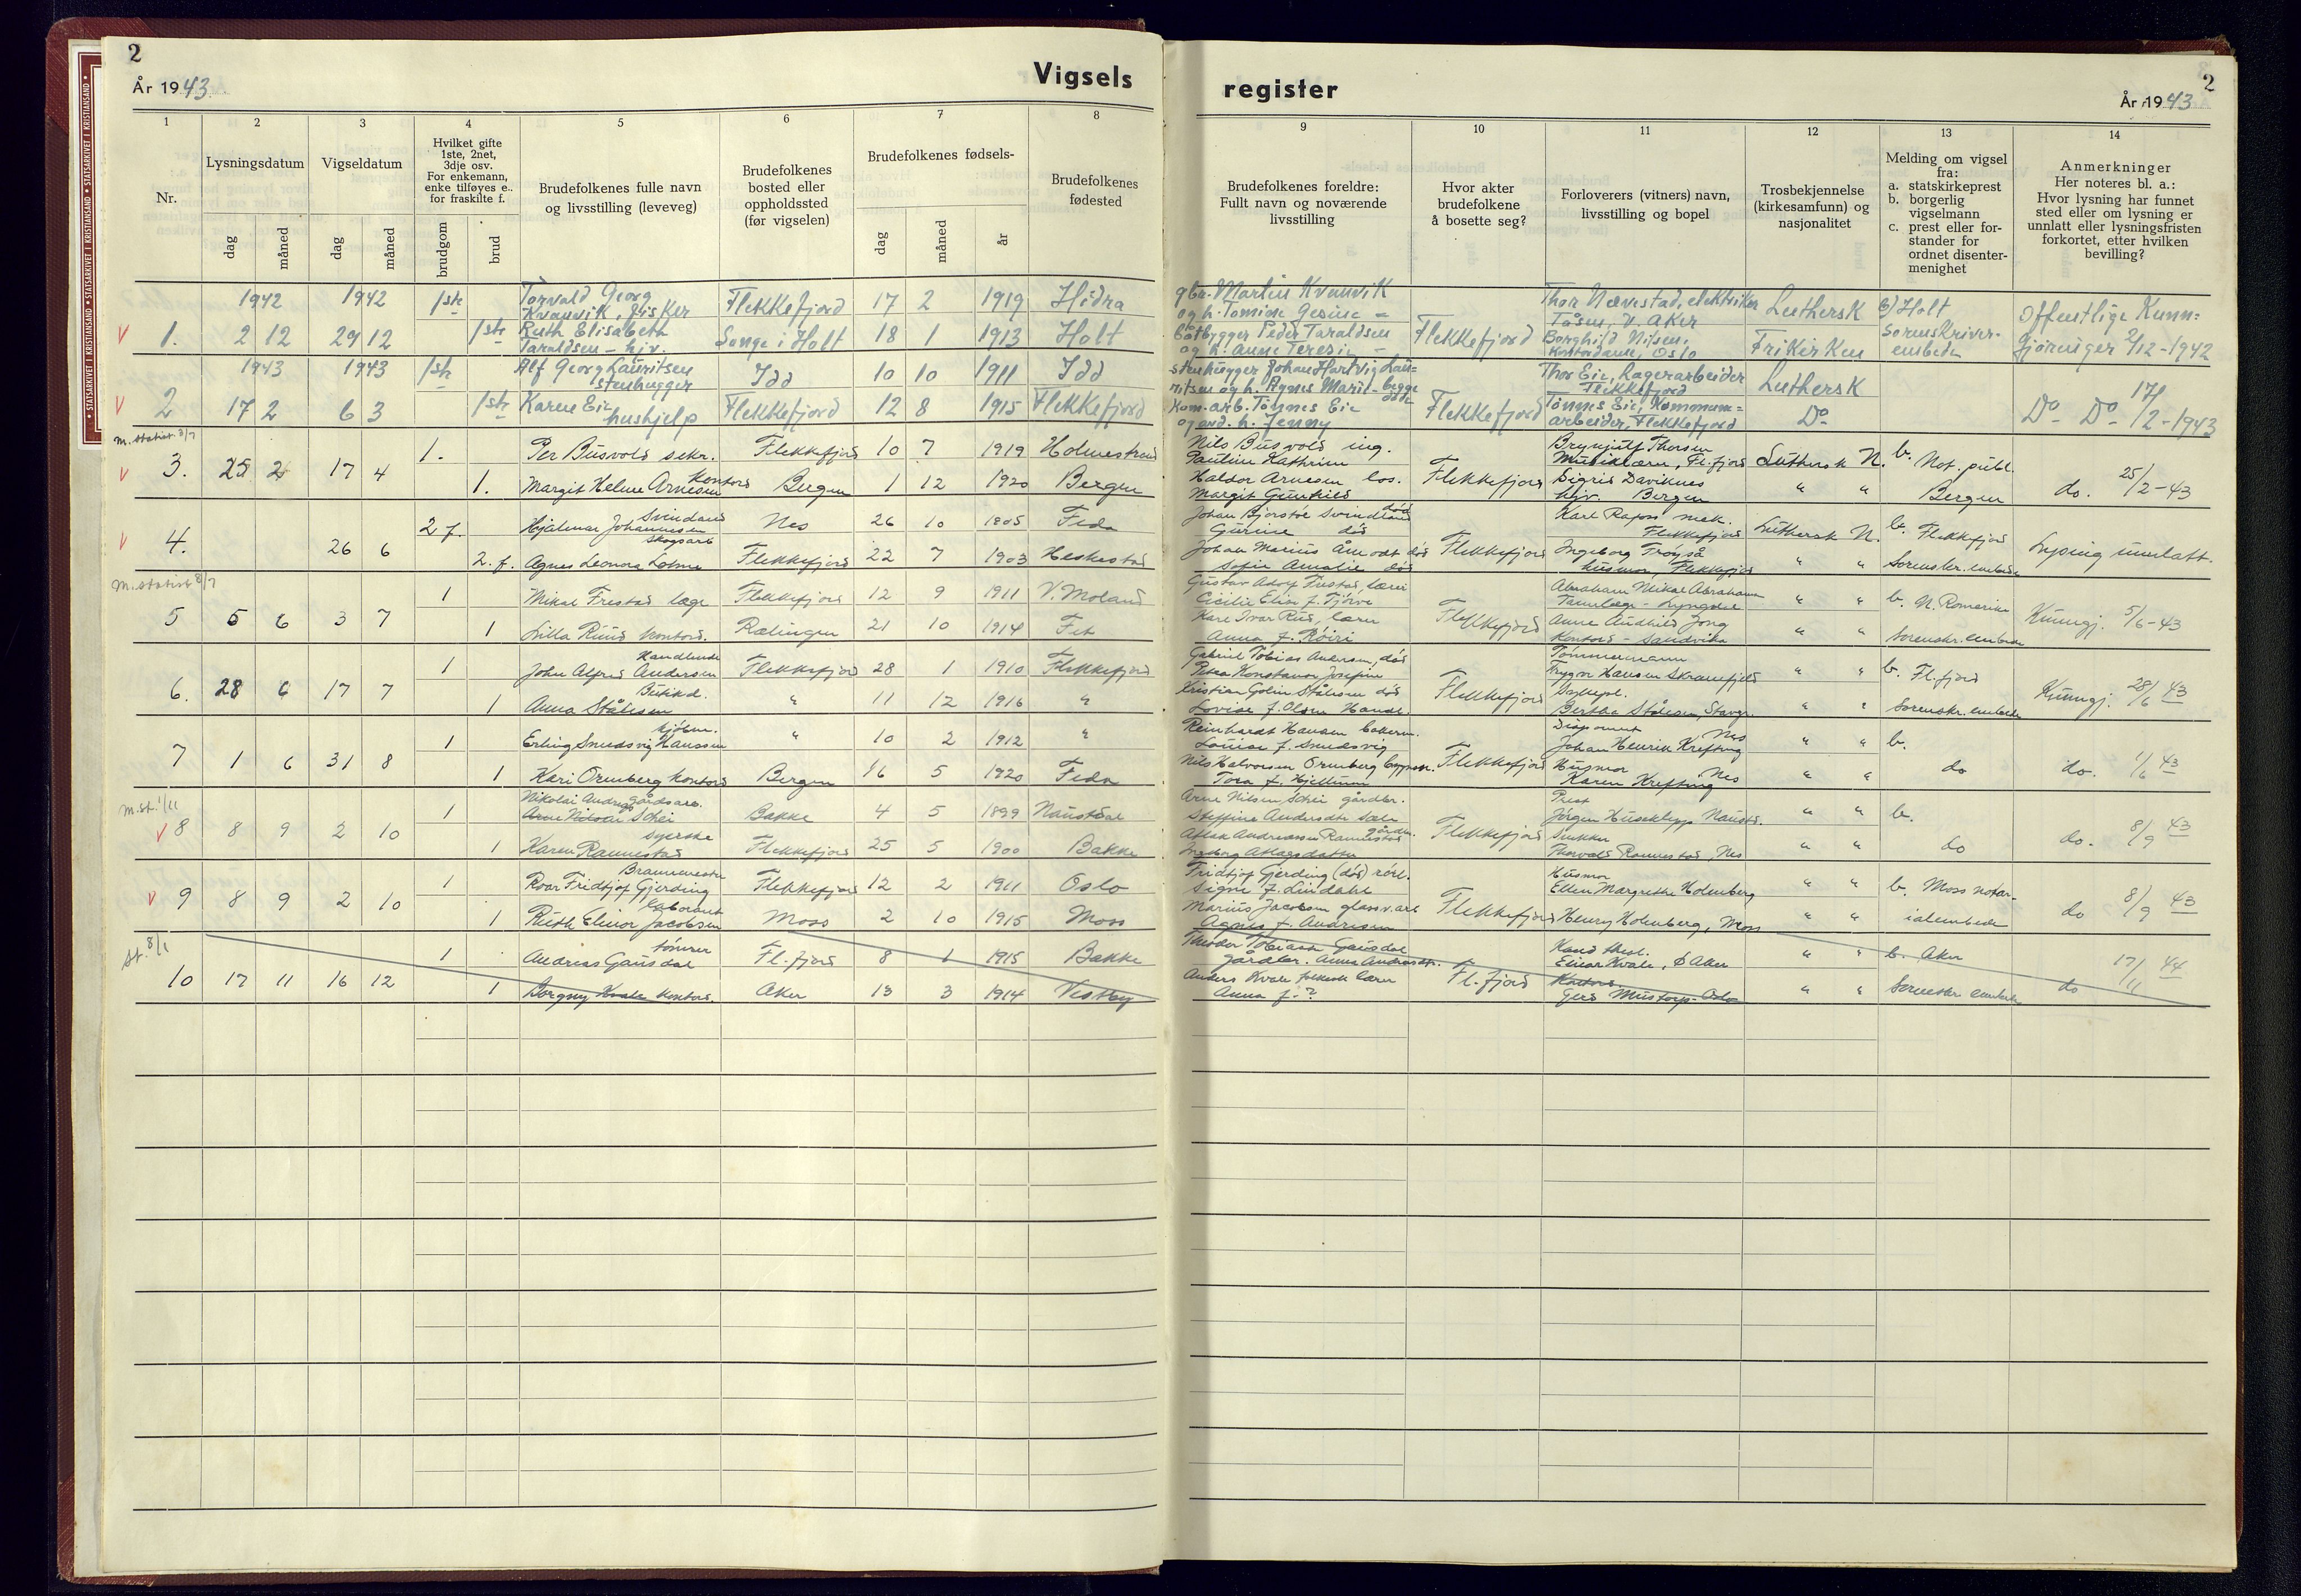 2
År 1943.
Vigsels
1
2
3
4
5
6
7
8
Nr.
Lysningsdatum
Vigseldatum
Hvilket gifte
1ste, 2net,
3dje osv.
For enkemann,
enke tilføyes e..
for fraskilte f.
Brudefolkenes fulle navn
og livsstilling (leveveg)
Brudefolkenes
bosted eller
oppholdssted
(før vigselen)
Brudefolkenes fødsels-
Brudefolkenes
fødested
dag
måned
dag
måned
brudgom
brud
dag
måned
år
1942 1942 1ste Torvald Georg
Kvanvik, fisker Flekkefjord 17 2 1919 Hidra
V 1. 2 12 29 12 1ste Ruth Elisabeth
Taraldsen - hjv. Songe i Holt 18 1 1913 Holt
1943 1943 1ste Alf Georg Lauritsen
stenhugger Idd 10 10 1911 Idd
V 2 17 2 6 3 1ste Karen Eie
hushjelp Flekkefjord 12 8 1915 Flekkefjord
m. statist. 8/7
1. Per Busvold sekr. Flekkefjord 10 7 1919 Holmestrand
V 3. 25 2 17 4
1. Margit Helene Arnesen kontord Bergen 1 12 1920 Bergen
2 f. Hjalmar Johannesen Svindland
skogsarb Nes 26 10 1905 Feda
V 4. 26 6
2. f. Agnes Leonora Lohne Flekkefjord 22 7 1903 Heskestad
M. statist 8/7
1 Mikal Frestad læge Flekkefjord 12 9 1911 V. Moland
5 5 6 3 7
1 Lilla Ruud kontord. Rælingen 21 10 1914 Fet
1 John Alfred Andersen Handlende Flekkefjord 28 1 1910 Flekkefjord
6. 28 6 17 7
1 Anna Stålesen Butikd. " 11 12 1916 "
1 Erling Smedsvig Hanssen kjøbm. " 10 2 1912 "
7 1 6 31 8
1 Kari Ørenberg kontord Bergen 16 5 1920 Feda
m. st. 1/11
1 Nikolai Andreas gårdsarb.
Schei Bakke 4 5 1899 Naustdal
V 8 8 9 2 10
1 Karen Rannestad syerske Flekkefjord 25 5 1900 Bakke
1 Roar Fridtjof Gjerding Brannmester Flekkefjord 12 2 1911 Oslo
V 9 8 9 2 10
1 Ruth Elinor Jacobsen laborant Moss 2 10 1915 Moss
St. 8/1
1 Andreas Gausdal tømrer Fl.fjord 8 1 1915 Bakke
10 17 11 16 12
1 Borgny Kvale kontord. Aker 13 3 1914 Vestby
register
2
År 1943
9
10
11
12
13
14
Brudefolkenes foreldre:
Fullt navn og nøværende
livsstilling
Hvor akter
brudefolkene
å bosette seg?
Forloverers (vitners) navn,
livsstilling og bopel
Trosbekjennelse
(kirkesamfunn) og
nasjonalitet
Melding om vigsel
fra:
a. statskirkeprest
b. borgerlig
vigselmann
c. prest eller for-
stander for
ordnet disenter-
menighet
Anmerkninger
Her noteres bl. a.:
Hvor lysning har funnet
sted eller om lysning er
unnlatt eller lysningsfristen
forkortet, etter hvilken
bevilling?
gbr. Martin Kvanvik
og h. Tomine Gesine -
båtbygger Peder Taraldsen
og h. Anne Teresie -
Flekkefjord
Thor Nævestad, elektriker
Tåsen, V. Aker
Borghild Nilsen,
kontordame, Oslo
Luthersk
Frikirken
b) Holt
sorenskriver-
embede
Offentlige Kunn-
gjøringer 2/12-1942
stenhugger Johan Hartvig Lau-
ritsen og h. Agnes Marie - begge
døde
kom.arb. Tønnes Eie
og avd. h. Jenny
Flekkefjord
Thor Eie, Lagerarbeider
Flekkefjord
Tønnes Eie, Kommune-
arbeider, Flekkefjord
Luthersk
Do
Do Do 17/2-1943
Nils Busvold ing.
Pauline Kathrine
Haldor Arnesen los.
Margit Gunhild
Flekkefjord
Brynjulf Thorsen
Musiklærer, Fl.fjord
Sigrid Daviknes
hjv. Bergen
Luthersk N.
" "
b. Not. publ.
Bergen
do. 25/2-43
Johan Bjorstøe Svindland død
Gurine død
Johan Marius Åmodt død
Sofie Amalie død
Flekkefjord
Karl Rapos mek.
Flekkefjord
Ingeborg Frøyså
husmor, Flekkefjord
Luthersk N.
" "
b. Flekkefjord
Sorenskr. embede
Lysing unnlatt.
Gustav Adolf Frestad, lærer
Cicilie Elise f. Tjörve
Kare Ivar Rud, lærer
Anna f. Röiri
Flekkefjord
Abraham Mikal Abrahamsen
Tannlæge - Lyngdal
Anne Audhild Jong
Kontord - Sandvika
" "
" "
b. N. Romerike
Sorenskr. embede
Kunngj. 5/6-43
Gabriel Tobias Andersen, død
Petra Konstanse Josefine
Kristian Golin Stålesen död
Lovise f. Olsen Handl.
Flekkefjord
Tømmermann
Trygve Hansen Skrannefjeld
Sykepl.
Bertha Stålesen, Stavgr.
" "
" "
b. Fl.fjord
Sorenskr. embede
Kunngj. 28/6 43
Reinhardt Hansen bakerm.
Louise f. Smedsvig
Nils Halvorsen Ørenberg
Tora f. Hjellum
Flekkefjord
Disponent
Johan Henrik Krefting Nes
Husmor
Karen Krefting Nes
" "
" "
b.
do
do. 1/6 43
Arne Nilsen Schei gårdbr.
Steffine Andersdtr Sæle
Aslak Andreassen Rannestad gårdbr.
Ingeborg Aslagsdatter
Flekkefjord
Prest
Jörgen Husekleppp Naustd.
Snekker
Thorvald Rannestad, Nes
" "
" "
b.
do
do. 8/9 43
Fridtjof Gjerding (død) rörl.
Signe f. Lindahl
Marius Jacobsen glassv.arb
Agnes f. Andresen
Flekkefjord
Husmor
Ellen Margrethe Holmberg
Henry Holmberg, Moss
" "
" "
b. Moss notar-
ialembede
do 8/9 43
Theodor Tobiasen Gausdal
gårdbr. Anna Andersdtr.
Anders Kvale folkesk. lærer
Anna f. ?
Fl.fjord
Kand theol.
Einar Kvale, Ø Aker
Kontord.
Gerd Mustorp Oslo
" "
" "
b. Aker
Sorenskr. embede
do 17/11 44
STATSARKIVET I KRISTIANSAND